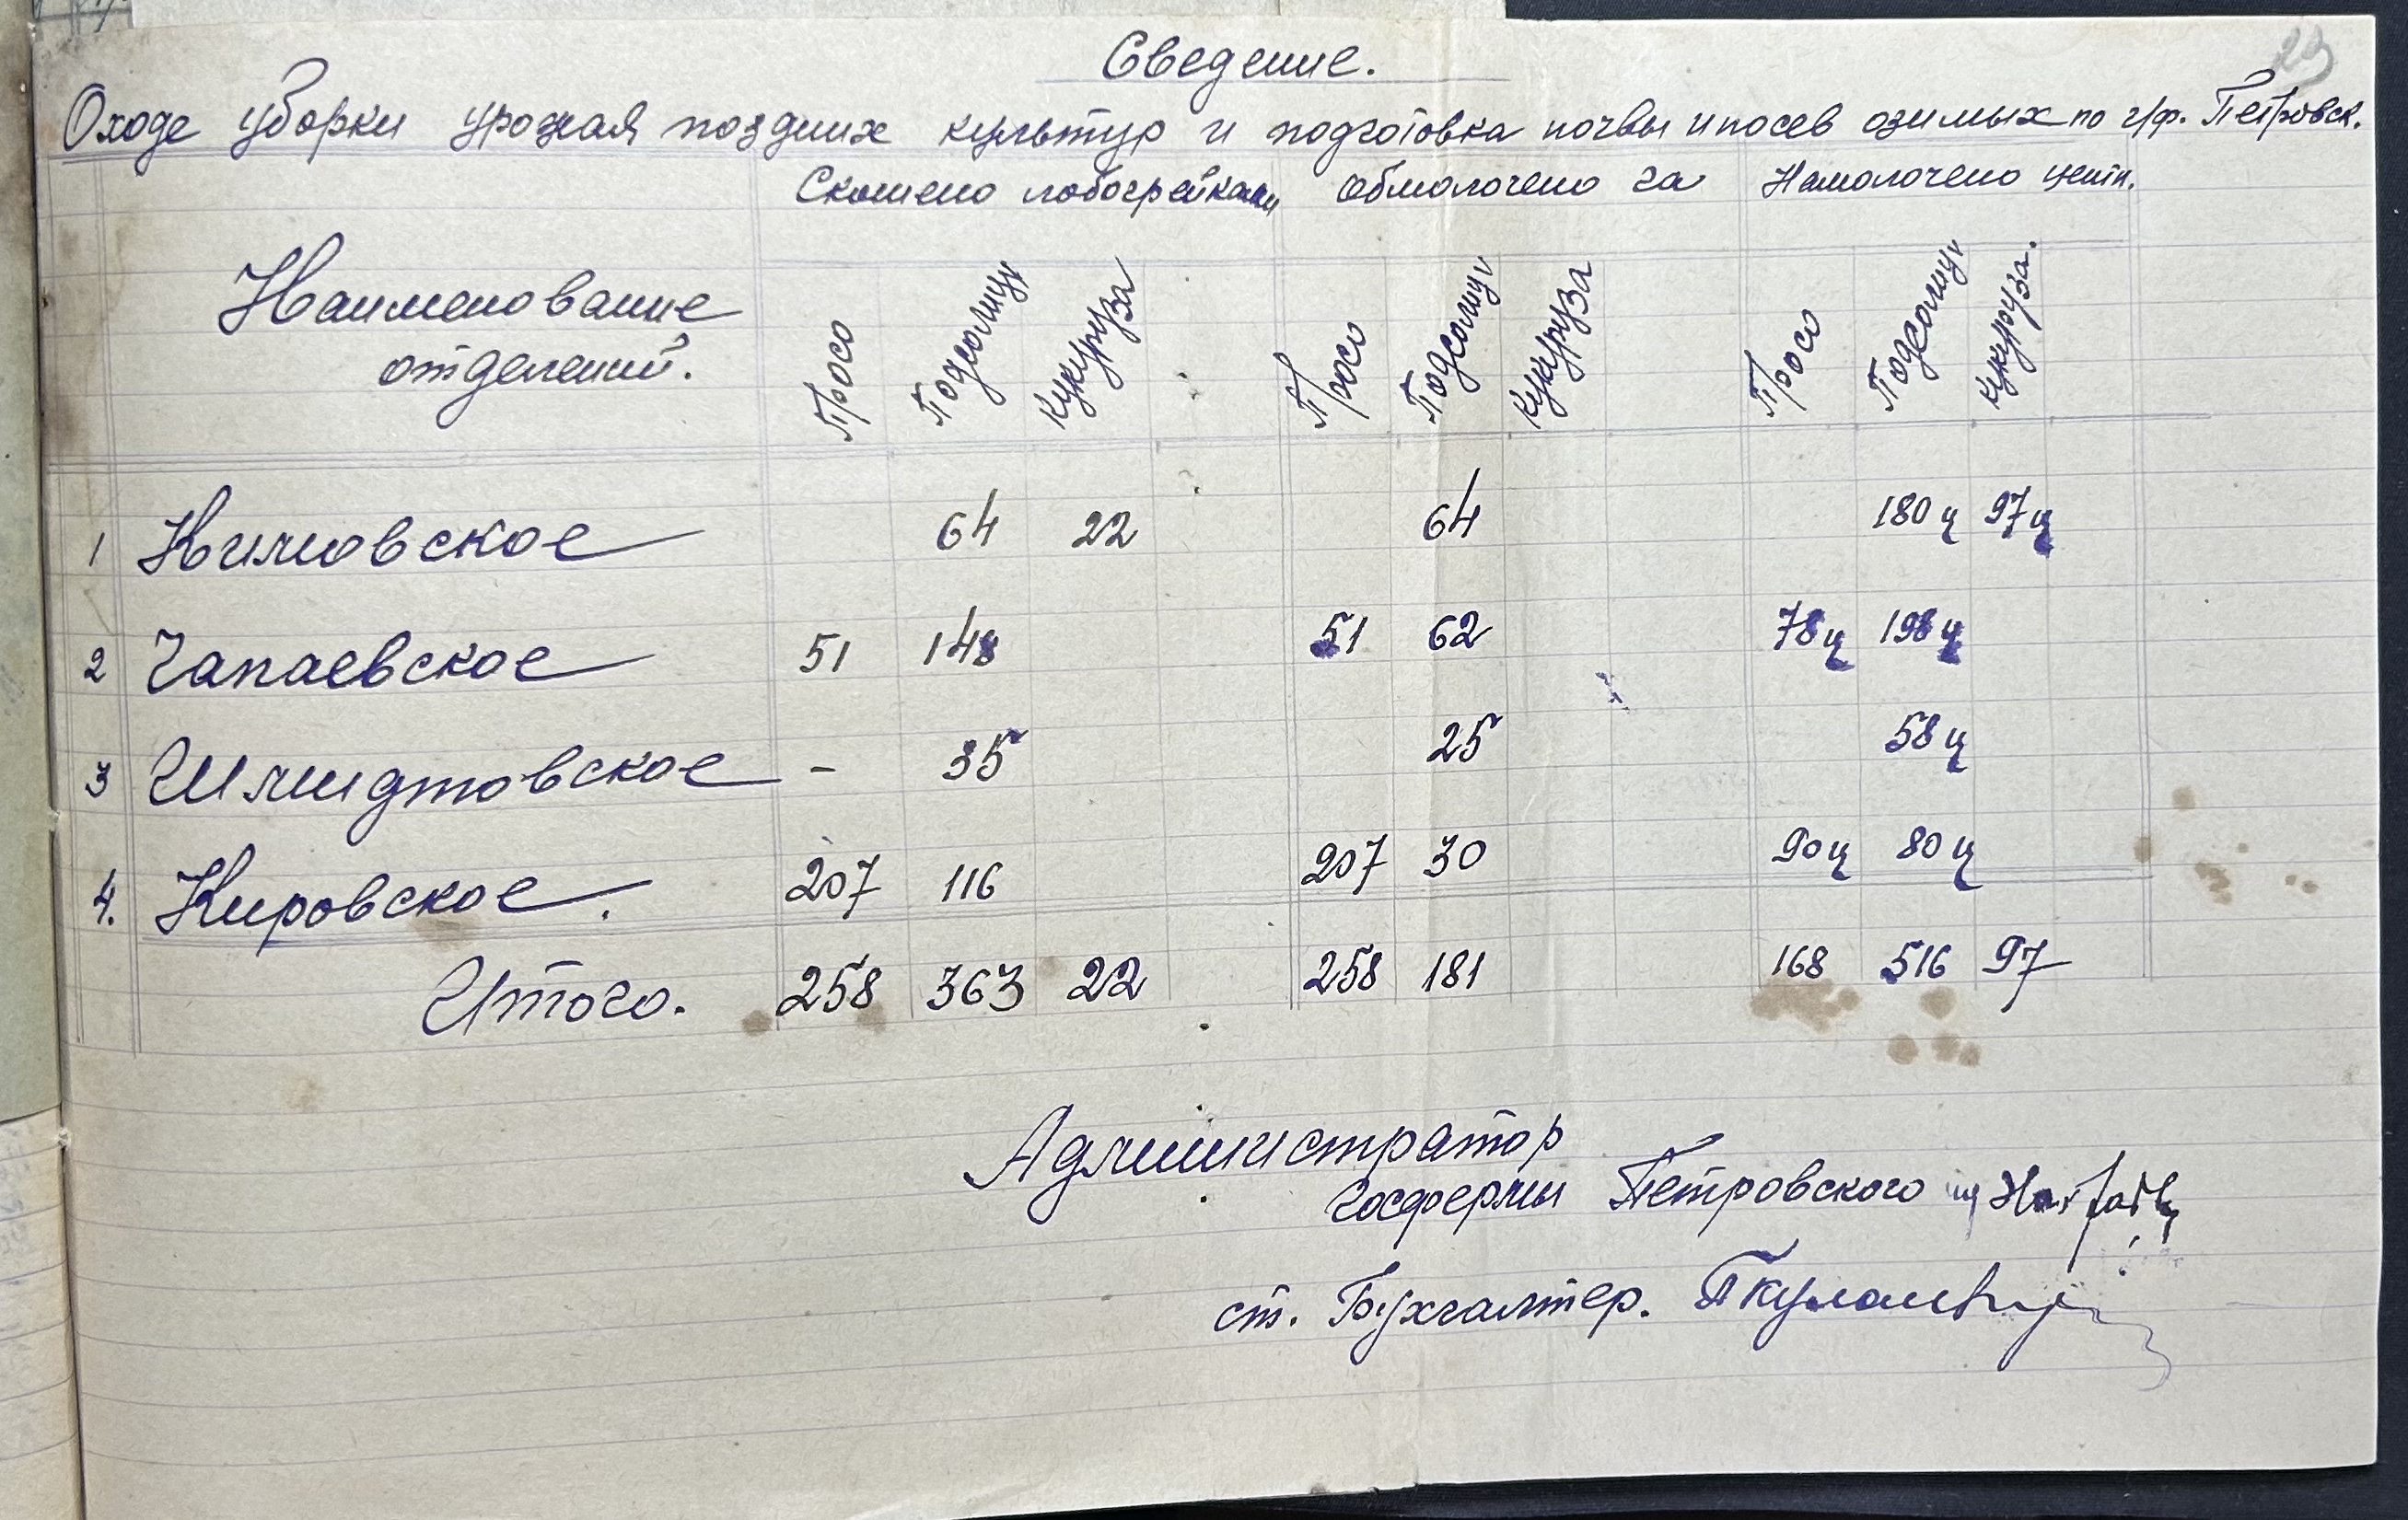 23
Сведение.
О ходе уборки урожая поздних культур и подготовка почвы и посев озимых по г/ф. Петровск.
Скошено лобогрейками Обмолочено га Намолочено центн.
Наименование отделений.
Просо Подсолнух Кукуруза Просо Подсолнух Кукуруза Просо Подсолнух Кукуруза.
1 Кимовское 64 22 64 180 ц 97 ц
2 Чапаевское 51 148 51 62 78 ц 198 ц
3 Шмидтовское - 35 25 58 ц
4. Кировское. 207 116 207 30 90 ц 80 ц
Итого. 258 363 22 258 181 168 516 97
Администратор
госфермы Петровского
ст. Бухгалтер.